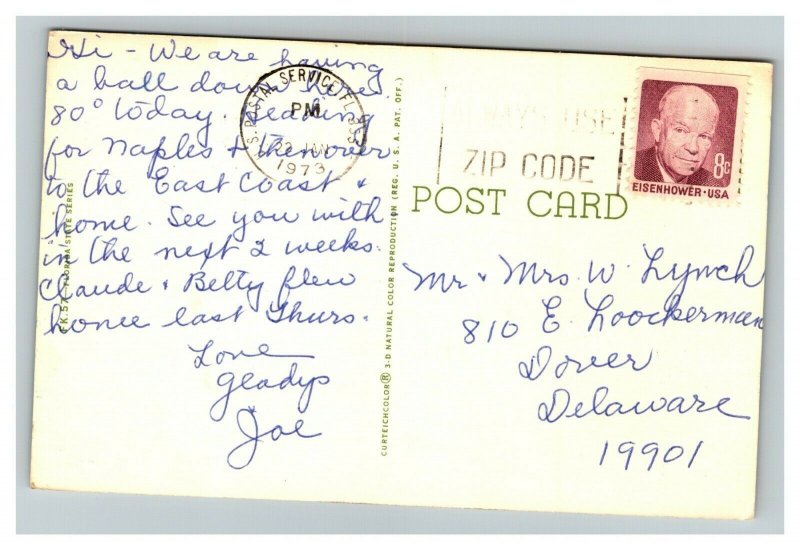 Hi - We are having
a ball down here.
80° today. Heading
for Naples & then over
to the East Coast &
home. See you with
in the next 2 weeks.
Claude & Betty flew
home last Thurs.
Love
Gladys
Joe
FLORIDA STATE SERIES
S. POSTAL SERVICE, FL
PM
22 JAN
1973
ALWAYS USE
ZIP CODE
8c
EISENHOWER·USA
POST CARD
CURTEICHCOLOR® 3-D NATURAL COLOR REPRODUCTION (REG. U. S. A. PAT. OFF.)
Mr & Mrs W. Lynch
810 E. Loockerman
Dover
Delaware
19901